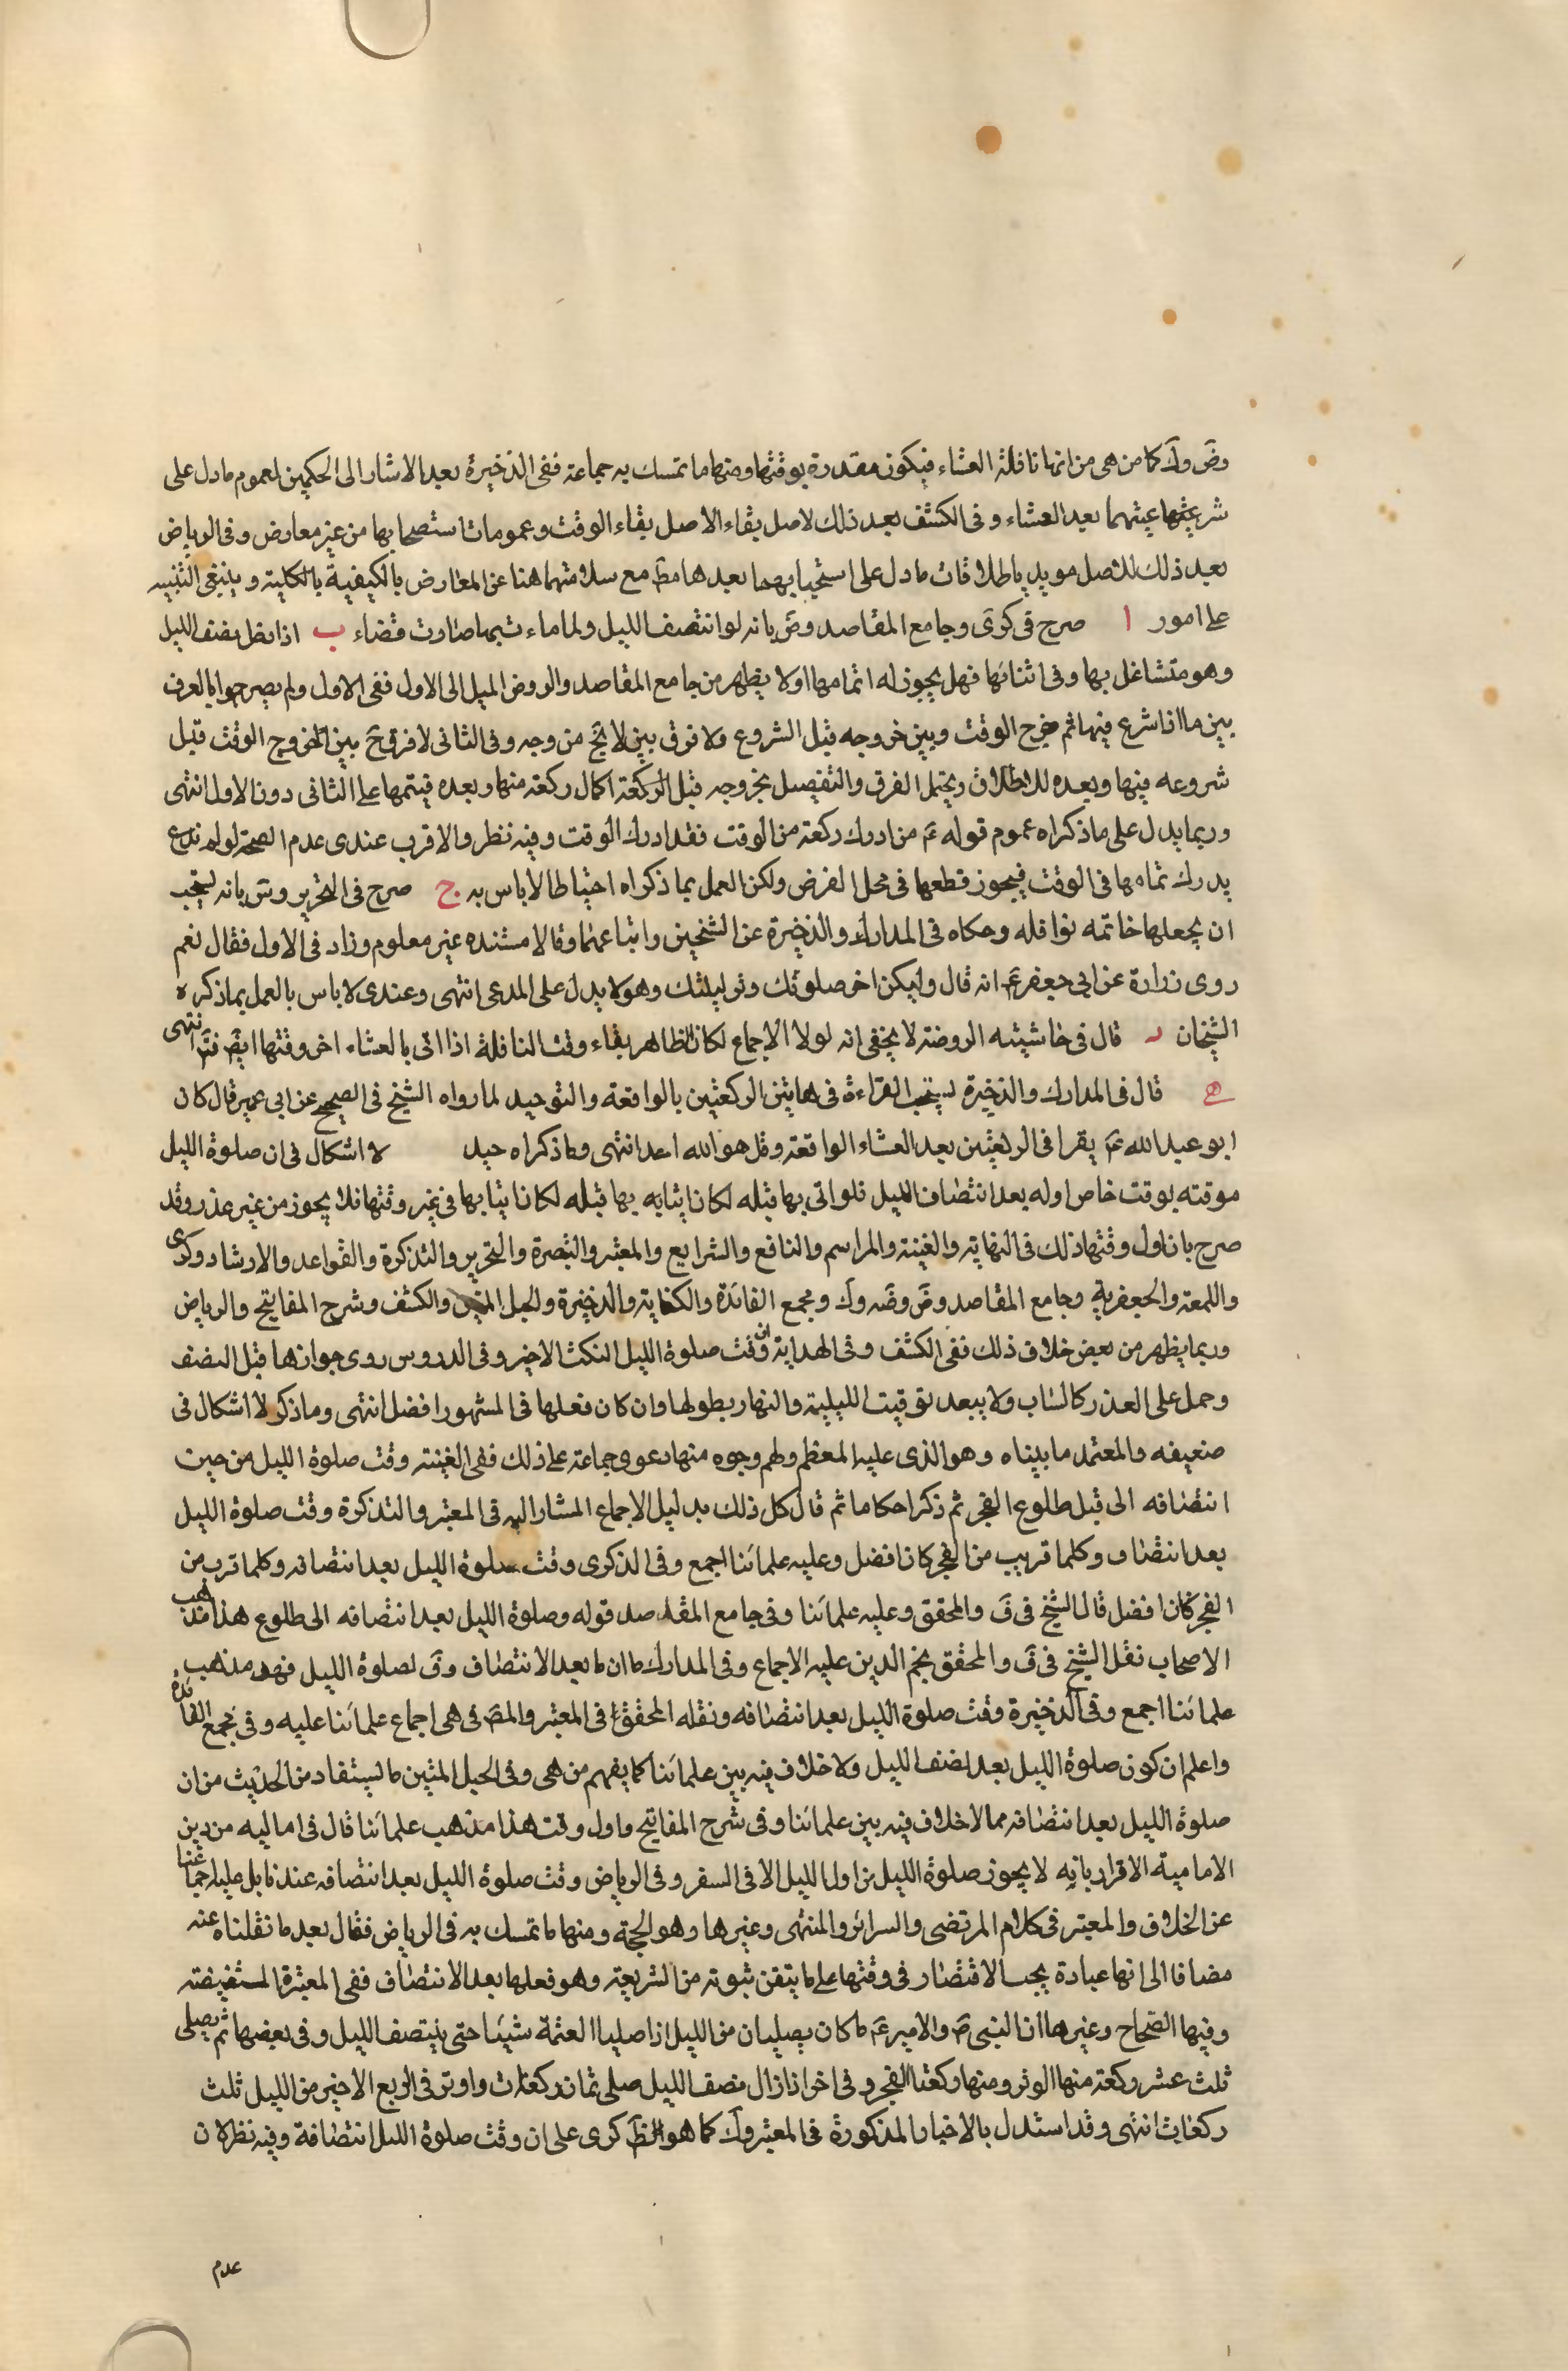 وض وك كما من هى من انها نافلة العشاء فيكون مقدرة بوقتها ومنها ما تمسك به جماعة ففى الذخيرة بعد الاشار الى الحكمين لعموم ما دل على
شرعيتهما بعد العشاء وفى الكشف بعد ذلك لاصل بقاء الاصل بقاء الوقت وعمومات استصحابها من غير معارض وفى الرياض
بعد ذلك للاصل مويد باطلاقات ما دل على استحبابهما بعدها مط مع سلامتهما هنا عن المعارض بالكيفية بالكلية وينبغى التنبيه
على امور ا صرح فى كرى وجامع المقاصد وض بانه لو انتصف الليل ولما صارت قضاء ب اذا نصف الليل
وهو متشاغل بها وفى اثنائها فهل يجوز له اتمامها اولا يظهر من جامع المقاصد والروض الميل الى الاول ففى الاول ولم يصرحوا بالفرق
بين ما اذا شرع فيها ثم خرج الوقت وبين خروجه قبل الشروع ولا فرق بين لا يخ من وجه وفى الثانى لا فرق ح بين خروج الوقت قبل
شروعه فيها وبعده للاطلاق ويحتمل الفرق والتفصيل بخروجه قبل الركعة اكمال ركعة منها وبعده فيتمها على الثانى دون الاول انتهى
وربما يدل على ما ذكراه عموم قوله ع من ادرك ركعة من الوقت فقد ادرك الوقت وفيه نظر والاقرب عندى عدم الصحة لو لم
يدرك تمامها فى الوقت فيجوز قطعها فى محل الفرض ولكن العمل بما ذكراه احتياطا لا باس به ج صرح فى التحرير وس بانه يستحب
ان يجعلها خاتمة نوافله وحكاه فى المدارك والذخيرة عن الشخين واتباعهما وقالا مستنده غير معلوم وزاد فى الاول فقال نعم
روى زرارة عن ابى جعفر ع انه قال وليكن اخر صلوتك وتر ليلتك وهو لا يدل على المدعى انتهى وعندى لا باس بالعمل بما ذكره
الشيخان د قال فى حاشيته الروضة لا يخفى انه لولا الاجماع لكان الظاهر بقاء وقت النافلة اذا اتى بالعشاء اخر وقتها ايض انتهى
ه قال فى المدارك والذخيرة يستحب القراءة فى هاتين الركعتين بالواقعة والتوحيد لما رواه الشيخ فى الصحيح عن ابى عمير قال كان
ابو عبد الله ع يقرا فى الركعتين بعد العشاء الواقعة وقل هو الله احد انتهى وما ذكراه جيد لا اشكال فى ان صلوة الليل
موقته بوقت خاص اوله بعد انتصاف الليل فلو اتى بها قبله لكان اتيا بها قبله لكان اتيا بها فى غير وقتها فلا يجوز من غير عذر وقد
صرح بان اول وقتها ذلك فى النهاية والغنية والمراسم والنافع والشرايع والمعتبر والتبصرة والتحرير والتذكرة والقواعد والارشاد وكرى
واللمعة والجعفرية وجامع المقاصد وض وضه وك ومجمع الفائدة والكفاية والذخيرة والحبل المتين والكشف وشرح المفاتيح والرياض
وربما يظهر من بعض خلاف ذلك ففى الكشف وفى الهداية ان وقت صلوة الليل الثلث الاخير وفى الدروس روى جوازها قبل النصف
وحمل على العذر كالشاب ولا يبعد توقيت الليلية والنهار بطولها وان كان فعلها فى المشهور افضل انتهى وما ذكر لا اشكال فى
ضعيفه والمعتمد ما بيناه وهو الذى عليه المعظم ولهم وجوه منها دعوى جماعة على ذلك ففى الغنية وقت صلوة الليل من حين
انتصافه الى قبل طلوع الفجر ثم ذكر احكاما ثم قال كل ذلك بدليل الاجماع المشار اليه وفى المعتبر والتذكرة وقت صلوة الليل
بعد انتصاف وكلما قريب من الفجر كان افضل وعليه علمائنا اجمع وفى الذكرى وقت صلوة الليل بعد انتصافه وكلما قرب من
الفجر كان افضل قال الشيخ فى ف والمحقق وعليه علمائنا وفى جامع المقاصد قوله وصلوة الليل بعد انتصافه الى طلوع هذا مذهب
الاصحاب نقل الشيخ فى ف والمحقق نجم الدين عليه الاجماع وفى المدارك ما ان ما بعد الانتصاف وق لصلوة الليل فهو مذهب
علمائنا اجمع وفى الذخيرة وقت صلوة الليل بعد انتصافه ونقله المحقق فى المعتبر والمص فى هى اجماع علمائنا عليه وفى مجمع الفائدة
واعلم ان كون صلوة الليل بعد نصف الليل ولا خلاف فيه بين علمائنا كما يفهم من هى وفى الحبل المتين ما يستفاد من الحديث من ان
صلوة الليل بعد انتصافه مما لا خلاف فيه بين علمائنا وفى شرح المفاتيح واول وقت هذا مذهب علمائنا قال فى اماليه من دين
الامامية الاقرار بانه لا يجوز صلوة الليل من اول الليل الا فى السفر وفى الرياض وقت صلوة الليل بعد انتصافه عندنا بل عليه اجماعنا
عن الخلاف والمعتبر فى كلام المرتضى والسرائر والمنتهى وغيرها وهو الحجة ومنها ما تمسك به فى الرياض فقال بعد ما نقلناه عنه
مضافا الى انها عبادة يجب الاقتصار فى وقتها على ما يتقن ثبوته من الشريعة وهو فعلها بعد الانتصاف ففى المعتبرة المستفيضة
وفيها الصحاح وغيرها ان النبى ص والامير ع ما كان يصليان من الليل اذا صليا العتمة شيئا حتى ينتصف الليل وفى بعضها ثم يصلى
ثلث عشر ركعة منها الوتر ومنها ركعتا الفجر وفى اخر اذا زال نصف الليل صلى ثمان ركعات واوتر فى الربع الاخير من الليل ثلث
ركعات انتهى وقد استدل بالاخبار المذكورة فى المعتبر وك كما هو الظ كرى على ان وقت صلوة الليل انتصافة وفيه نظر لان
عدم